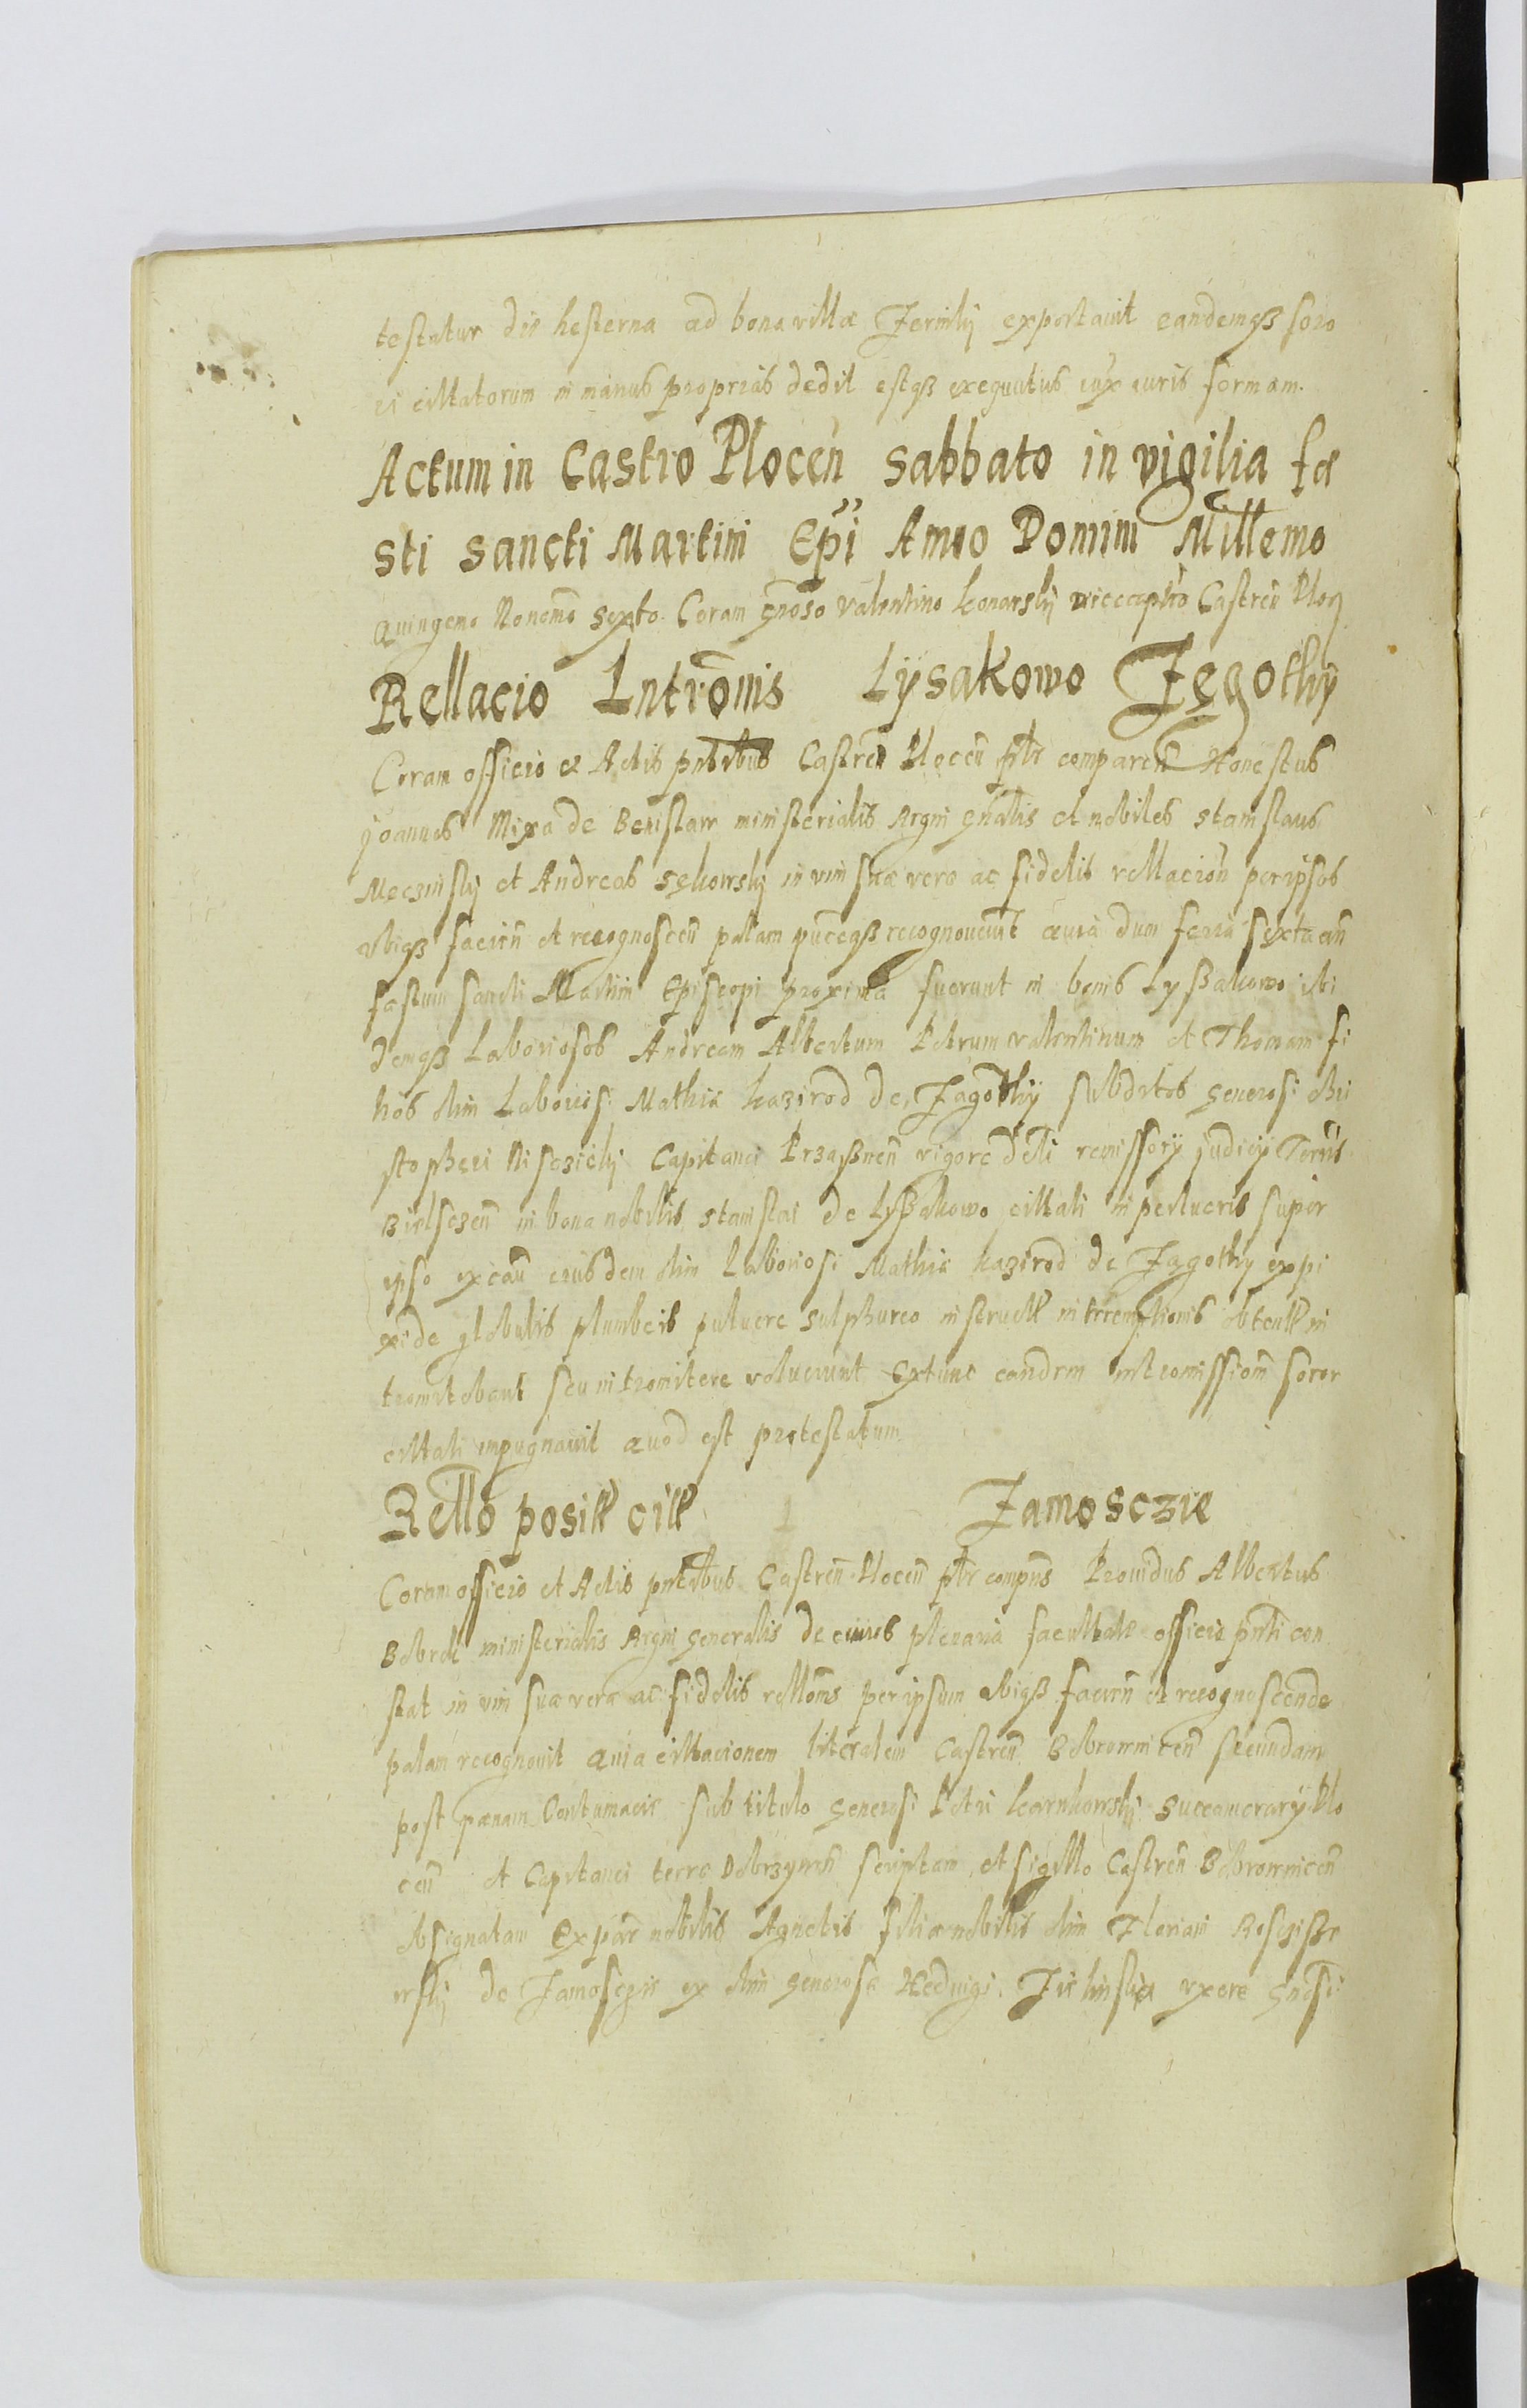 testatur die hesterna ad bona villæ Jerniky exportavit eandemqß soro
ri cittatorum in manus proprias dedit estqß exequutus iux iuris formam.
Actum in Castro Plocen̄ sabbato in vigilia fe
sti sancti Martini Epi Anno Domini Millemo
quingeno Nonomo sexto. Coram gnoso Valentino konarsky viceceptro Castren̄ Ploc
Rellacio Introm̄is Lysakowo Jęgothy
Coram officio et Actis pntibus Castren̄ Plocen̄ pltr comparen̄ Honestus
joannes Mixa de ministerialis Regni gnalis et nobiles stanislaus
Meczinsky et Andreas sękowsky in vim suæ veræ ac fidelis rellacion̄ per ipsos
ubiqß facien̄ et recognoscen̄ palam puceqß recognoverunt quia dum feria sexta an̄
festum sancti Martini Episcopi proxima fuerunt in bonis Lyßakowo ibi
demqß Laboriosos Andream Albertum Petrum valentinum et Thomam fi
lios olim Laboriosi Mathiæ kazirod de Jagothy subditos generosi Chri
stopheri Nisczicky Capitanei Przaßnen̄ vigore d̄cti remissory judicij Terris
Bielsczen̄ in bona nobilis stanislai de Lyßakowo cittati in perlucris super
ipso ex cau̅ eiusdem olim Laboriosi Mathiæ kazirod de Jagothy ex pi
xide globulis plumbeis pulvere sulphureo instruct interemptionis obtent in
tromitebant seu intromitere voluerunt Extunc eandem intromissiom̄ soror
cittati impugnavit quod est protestatum
Rello posit citt Jamosczie
Coram officio et Actis pntibus Castren̄ Plocen̄ pltr compns Providus Albertus
Bobrek ministerialis Regni generalis de cuius plenaria facultate officio pnti con
stat in vim suæ veræ ac fidelis rellom̄s per ipsum ubiqß facien̄ et recognoscende
palam recognovit quia cittacionem literalem Castren̄ Bobrownicen̄ secundam
post pænam Contumaciæ sub titulo generosi Petri karnkowsky succamerary Plo
cen̄ et Capitanei terræ Dobrzynen̄ scriptam et sigillo Castren̄ Bobrownicen̄
obsignatam Ex par nobilis Agnetis filiæ nobilis olim Floriani Rosczisße
wsky de Jamosczie ex olim generosa Hedvigi uxore gnosi